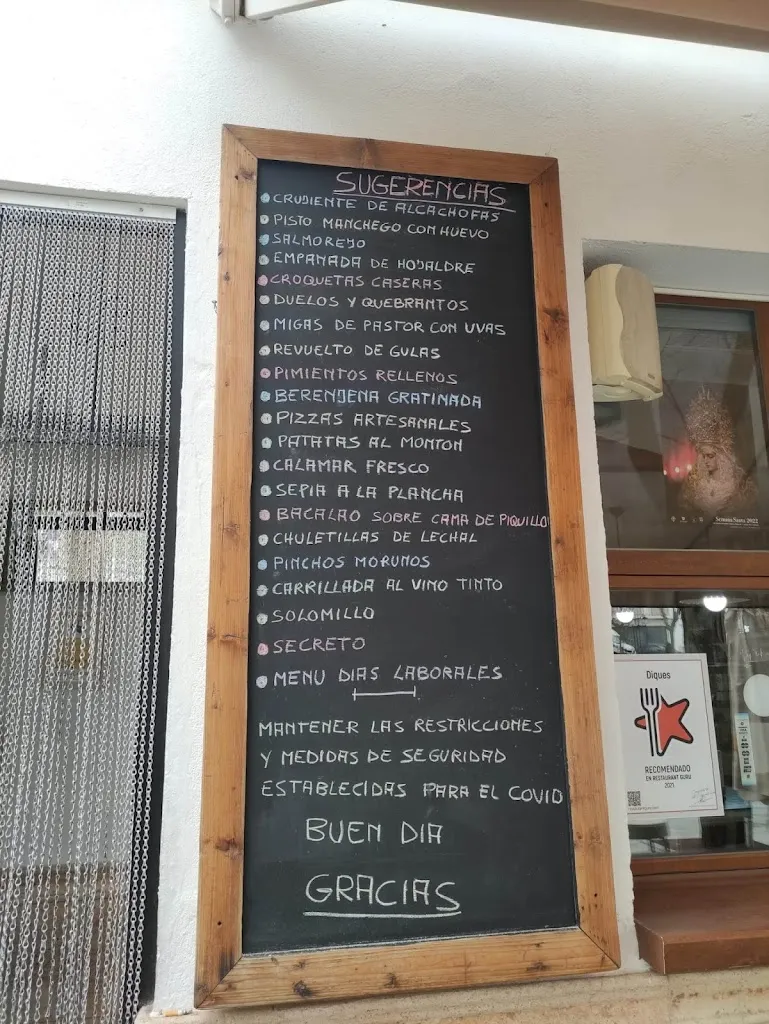 SUGERENCIAS
CRUJIENTE DE ALCACHOFAS
PISTO MANCHEGO CON HUEVO
SALMOREJO
EMPANADA DE HOJALDRE
CROQUETAS CASERAS
DUELOS Y QUEBRANTOS
MIGAS DE PASTOR CON UVAS
REVUELTO DE GULAS
PIMIENTOS RELLENOS
BERENJENA GRATINADA
PIZZAS ARTESANALES
PATATAS AL MONTON
CALAMAR FRESCO
SEPIA A LA PLANCHA
BACALAO SOBRE CAMA DE PIQUILLO
CHULETILLAS DE LECHAL
PINCHOS MORUNOS
CARRILLADA AL VINO TINTO
SOLOMILLO
SECRETO
MENU DIAS LABORALES
MANTENER LAS RESTRICCIONES
Y MEDIDAS DE SEGURIDAD
ESTABLECIDAS PARA EL COVID
BUEN DIA
GRACIAS
Semana Santa 2022
Diques
RECOMENDADO
EN RESTAURANT GURU
2021